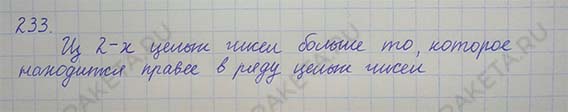 233.
Из 2-х целых чисел больше то, которое
находится правее в ряду целых чисел